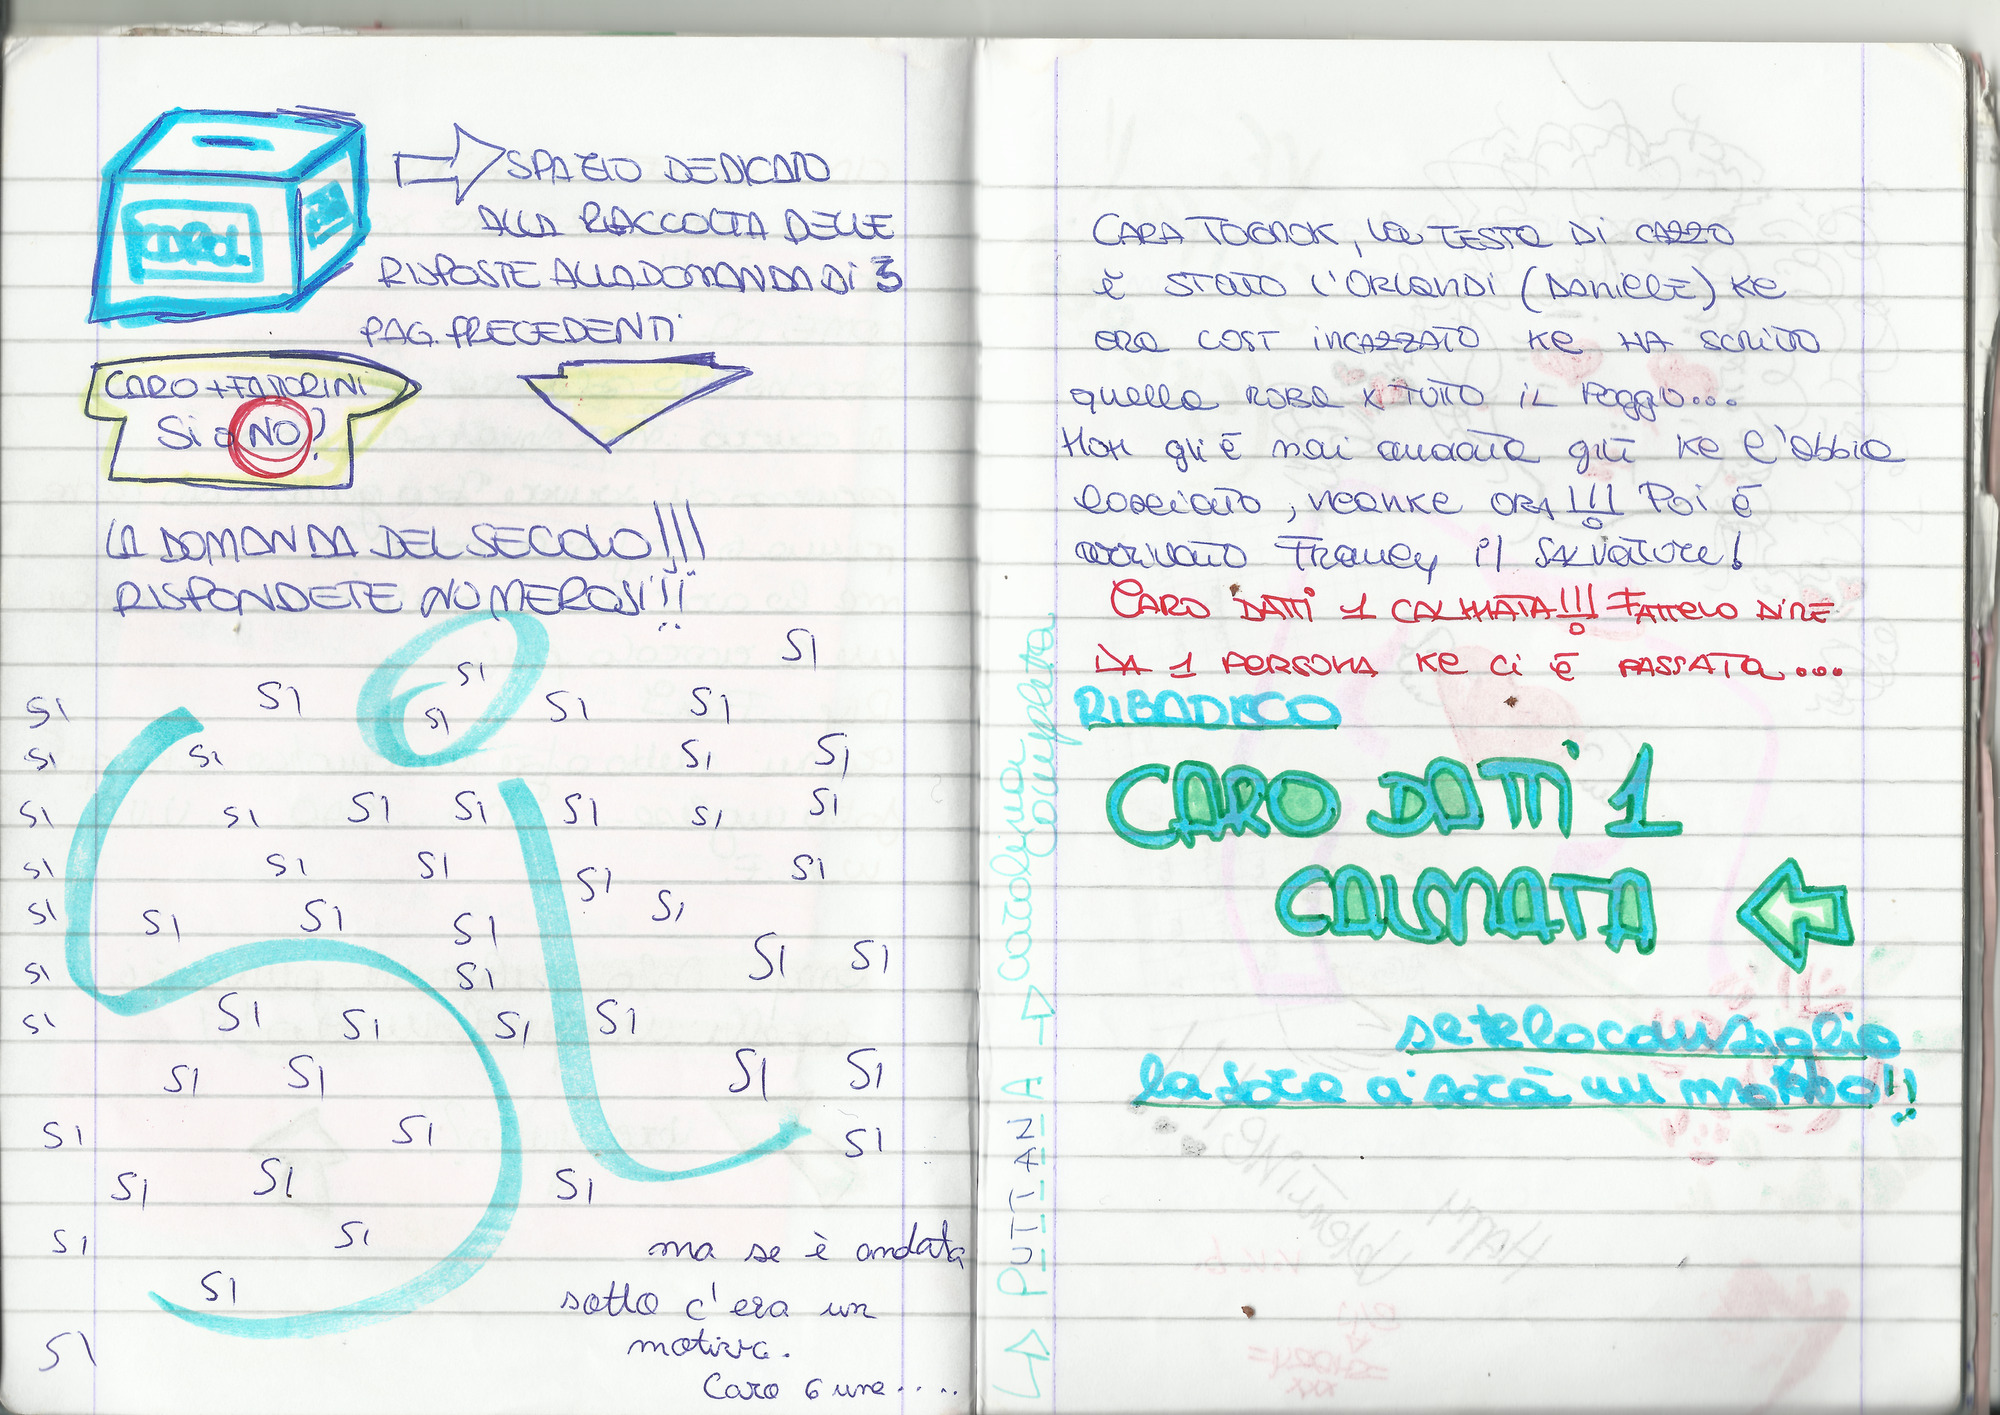 SPAZIO DEDICATO
ALLA RACCOLTA DELLE
RISPOSTE ALLA DOMANDA DI 3
PAG. PRECEDENTI
CARO + FATTORINI
Si o NO?
LA DOMANDA DEL SECOLO!!!
RISPONDETE NUMEROSI!!!
SI
SI
SI SI SI SI SI
SI SI SI SI
SI SI SI SI SI SI SI
SI SI SI SI SI
SI SI SI SI SI
SI SI SI SI
SI SI SI SI SI
SI SI SI SI
SI SI SI
SI SI SI
SI SI
SI
SI
Sì
ma se è andata
sotto c'era un
motivo.
Caro 6 una.....
PUTTANA → carolina completa
CARA TOGNOK, la TESTA DI CAZZO
è STATO l'ORLANDI (DANIELE) KE
ERA COSÌ INCAZZATO KE HA SCRITTO
quella ROBA X TUTTO IL POGGIO...
NON gli è mai andata giù KE l'abbia
lasciato, neanke ORA!!! Poi è
arrivato Francy il SALVATORE!
CARO DATTI 1 CALMATA!!! FATTELO DIRE
DA 1 PERSONA KE CI È PASSATA...
RIBADISCO
CARO DATTI 1
CALMATA
se te lo consiglio
la Sara ci sarà un motivo!!